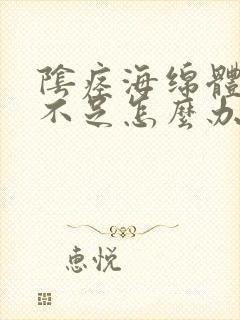 陰痙海绵體
不足怎麼办
惠悦